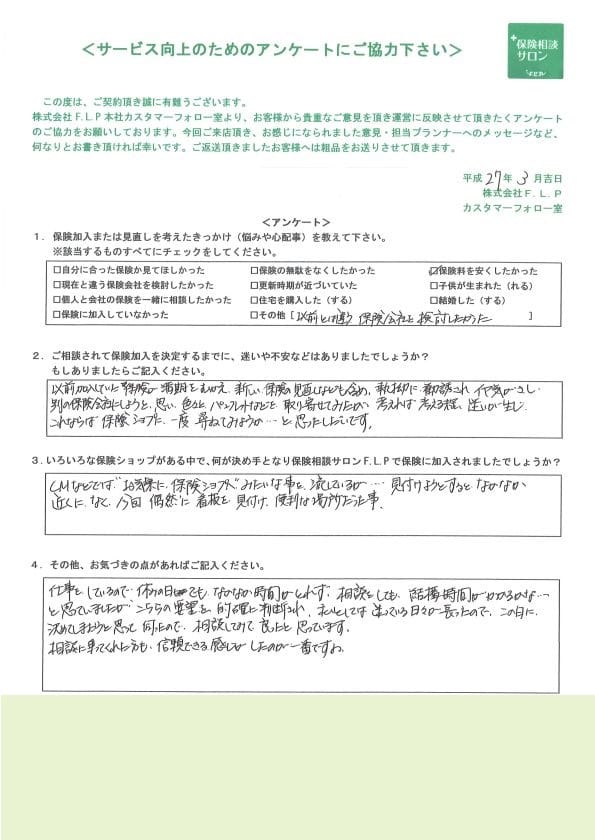 ＜サービス向上のためのアンケートにご協力下さい＞
保険相談
サロン
この度は、ご契約頂き誠に有難うございます。
株式会社F.L.P本社カスタマーフォロー室より、お客様から貴重なご意見を頂き運営に反映させて頂きたくアンケート
のご協力をお願いしております。今回ご来店頂き、お感じになられました意見・担当プランナーへのメッセージなど、
何なりとお書き頂ければ幸いです。ご返送頂きましたお客様へは粗品をお送りさせて頂きます。
平成 27年 3月吉日
株式会社F.L.P
カスタマーフォロー室
＜アンケート＞
1．保険加入または見直しを考えたきっかけ（悩みや心配事）を教えて下さい。
※該当するものすべてにチェックをしてください。
□自分に合った保険か見てほしかった □保険の無駄をなくしたかった ☑保険料を安くしたかった
□現在と違う保険会社を検討したかった □更新時期が近づいていた □子供が生まれた（れる）
□個人と会社の保険を一緒に相談したかった □住宅を購入した（する） □結婚した（する）
□保険に加入していなかった □その他［以前とは違う 保険会社を検討したかった
2．ご相談されて保険加入を決定するまでに、迷いや不安などはありましたでしょうか？
もしありましたらご記入ください。
以前加入していた保険が満期をむかえ、新しい保険の見直しなども含め、執拗に勧誘され
別の保険会社にしようと思い、色々と パンフレットなどを取り寄せてみたが、考えれば考える程、迷いが生じ
これならば 保険ショップに一度 尋ねてみようか…と思ったしだいです。
3．いろいろな保険ショップがある中で、何が決め手となり保険相談サロンF.L.Pで保険に加入されましたでしょうか？
CMなどでは"お気楽に保険ショップへ"みたいな事を流しているが… 見付けようとするとなかなか
近くになく、今回 偶然に看板を見付け、便利な場所だった事。
4．その他、お気づきの点があればご記入ください。
仕事をしているので 休みの日でも なかなか時間がとれず、相談をしても、結構時間がかかるかな…
と思っていましたが こちらの要望を 的確に判断され、私としては迷っている日々が長ったので、この日に
決めてしまおうと思って伺ったので、相談してみて良かったと思っています。
相談に乗ってくれた方も、信頼できる感じがしたのが一番ですね。